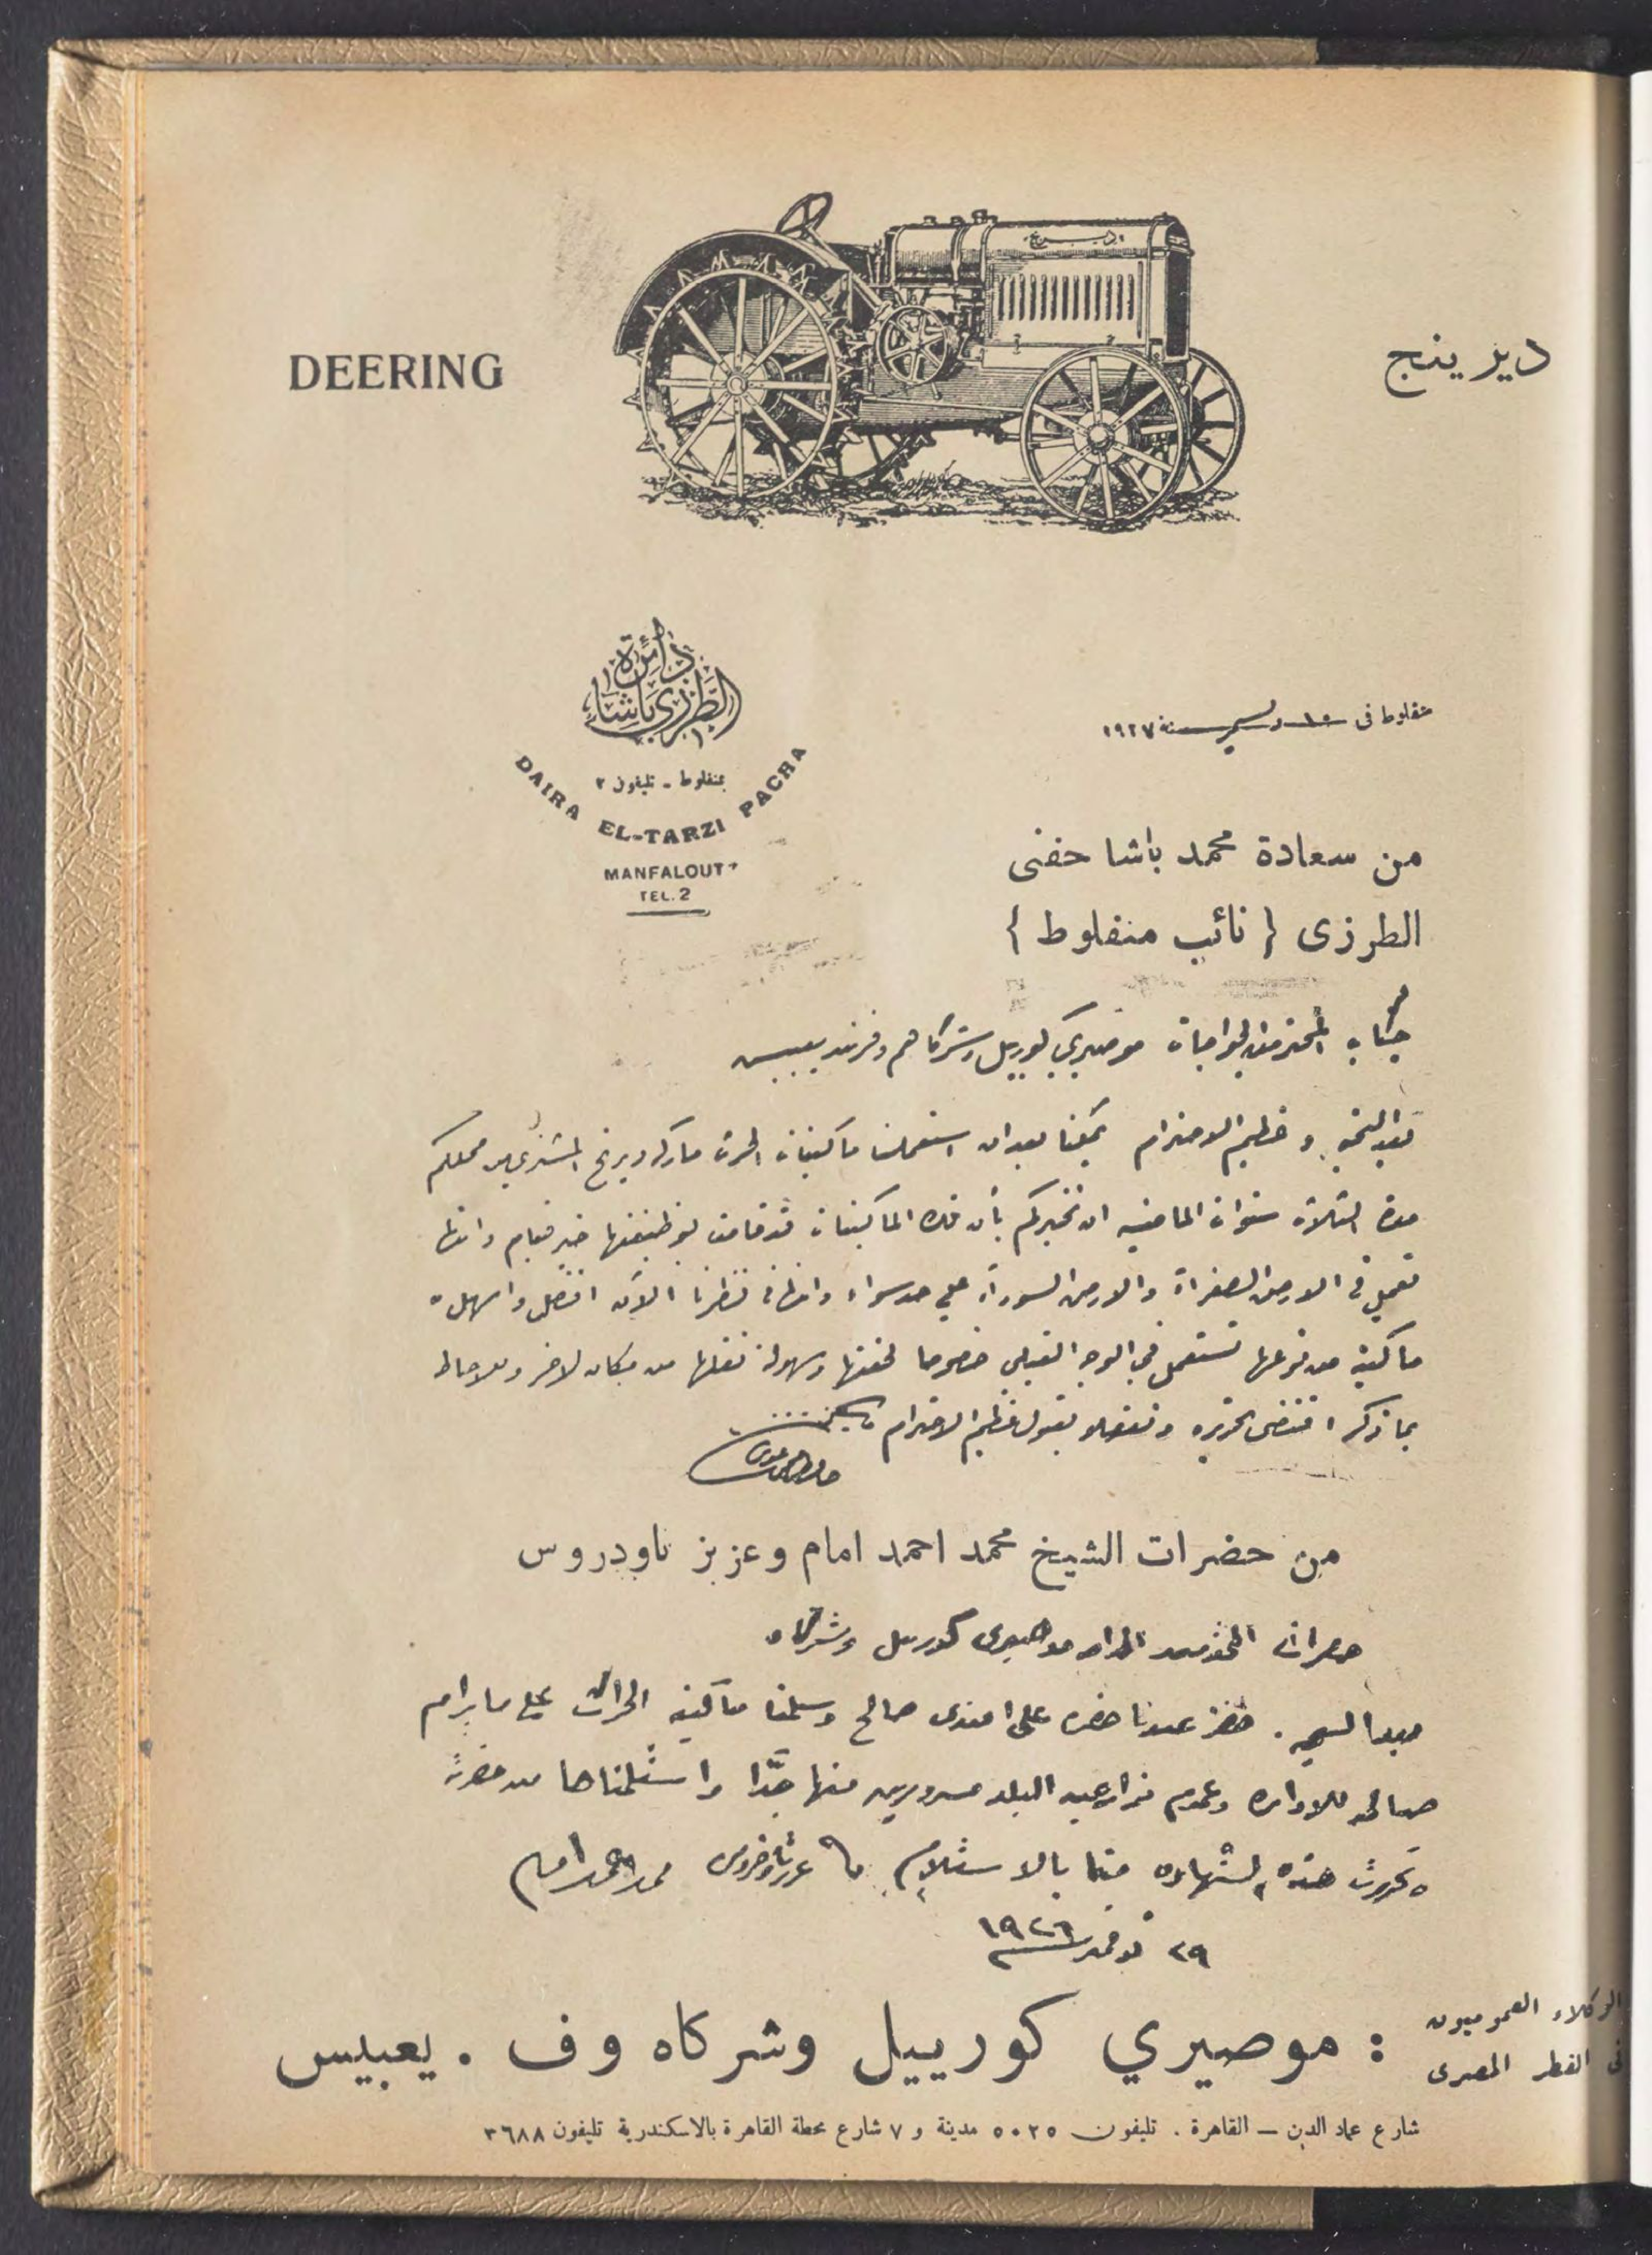 DEERING
ديرينج
ديرينج
دائرة
الطرزي باشا
بمنفلوط - تليفون ٢
DAIRA EL-TARZI PACHA
MANFALOUT
TEL. 2
منفلوط فى ١٥ ديسمبر سنة ١٩٢٧
من سعادة محمد باشا حفنى
الطرزى { نائب منفلوط }
جناب المحترمين الخواجات موصيري كورييل وشركاهم وفرند يعبيس
بعد التحية وعظيم الاحترام يمكننا بعد ان استعملنا ماكينات الحرث ماركة ديرنج المشتري من محلكم
مدة الثلاث سنوات الماضية ان نخبركم بأن هذه الماكينات قد قامت بوظيفتها خير قيام وانها
تعمل فى الارض الصفراء والارض السوداء علي حد سواء وانها فى نظرنا الآن افضل واسهل
ماكينة من نوعها تستعمل في الوجه القبلي خصوصا لخفتها وسهولة نقلها من مكان لاخر وللاحاطه
بما ذكر اقتضى تحريره وتفضلو بقبول عظيم الاحترام
من حضرات الشيخ محمد احمد امام وعزيز تاودروس
حضرات المحترمين الخواجه موصيرى كوريل وشركاه
بعد التحيه . حضر عندنا حضرة على افندى صالح وسلمنا ماكينه الحراث على ما يرام
صالحه للاداره وعموم مزارعين البلد مسرورين منها جدًا واستلمناها من حضرته
وتحررت هذه الشهاده منا بالاستلام عزيز تاوضروس محمد احمد امام
٢٩ نوفمبر ١٩٢٦
الوكلاء العموميون
فى القطر المصرى
: موصيري كورييل وشركاه وف . يعبيس
شارع عماد الدين — القاهرة . تليفون ٥٠٢٥ مدينة و ٧ شارع محطة القاهرة بالاسكندرية تليفون ٣٦٨٨